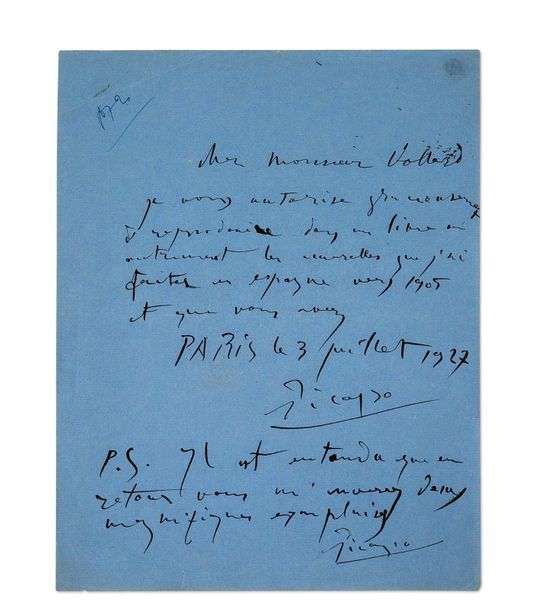 Cher monsieur Vollard
je vous autorise gracieusement
à reproduire dans un livre ou
autrement les que j'ai
faites en espagne vers 1905
et que vous avez
PARIS le 3 juillet 1927
Picasso
P.S. Il est entendu que en
retour vous m'
magnifiques exemplaires
Picasso